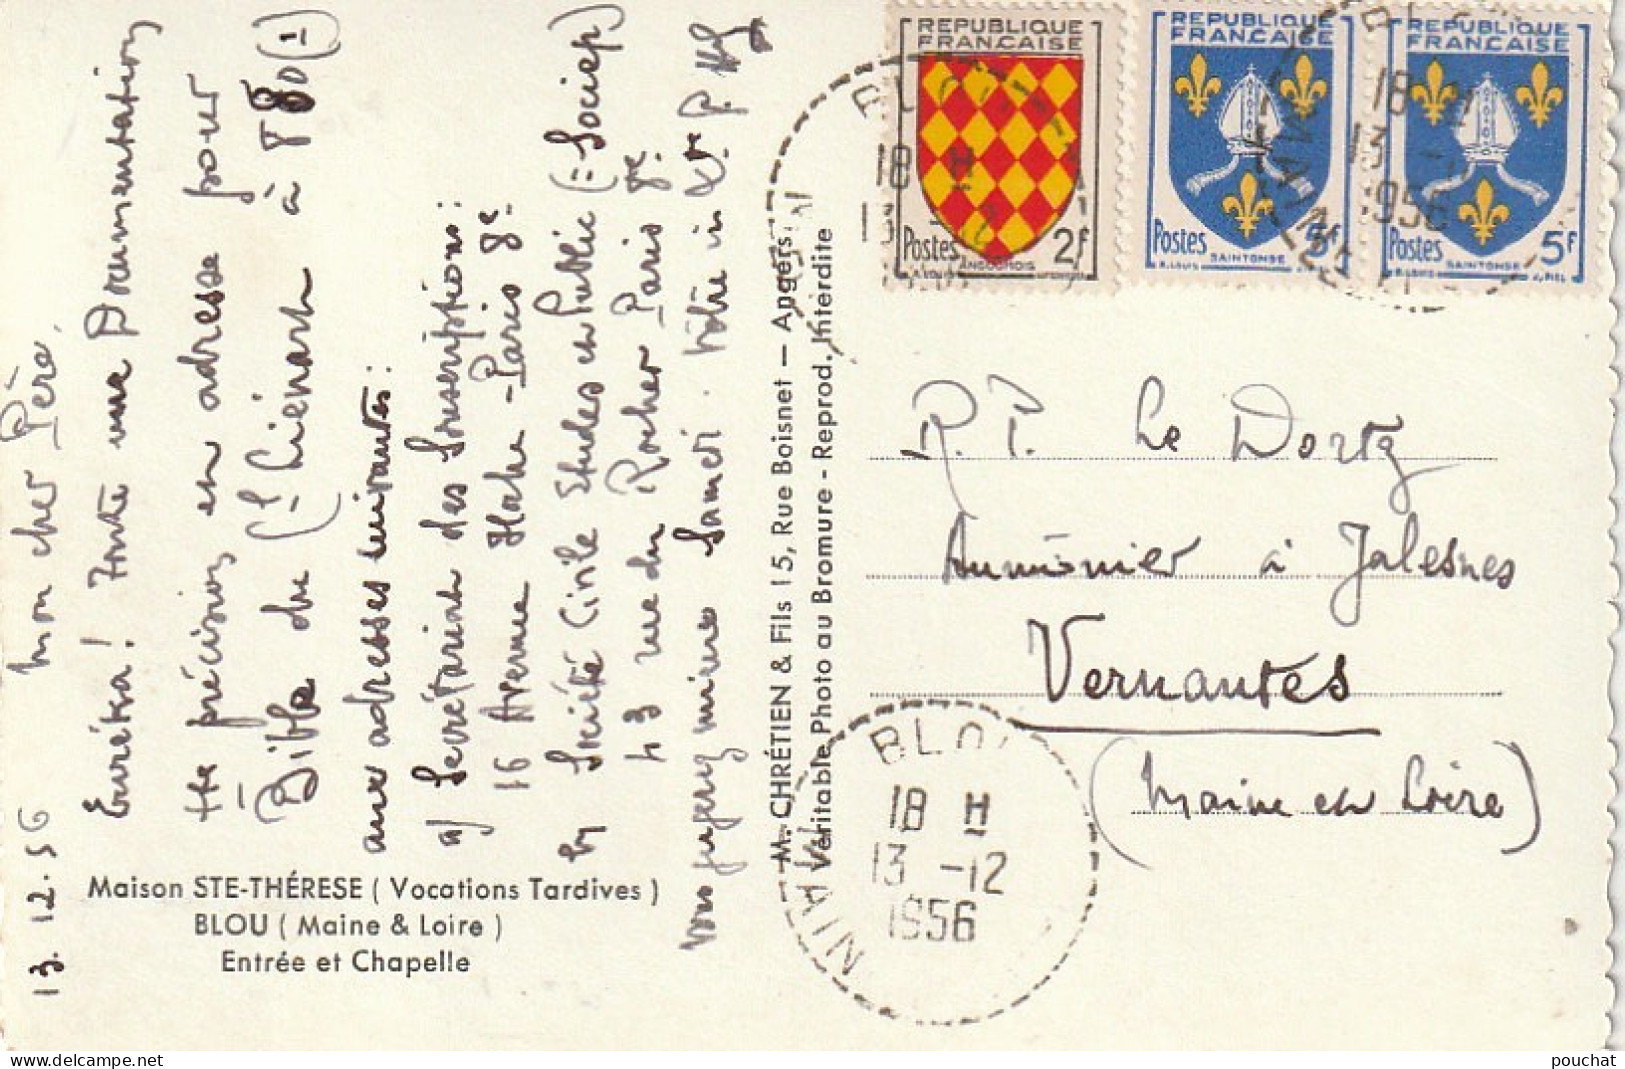 13.12.56
mon cher Père,
Euréka! toute une Documentation
et précision en adresse pour
Bible du Cl Liénart à 880 (1)
aux adresses suivantes:
a) Secrétariat des Souscriptions:
16 Avenue Hoche - Paris 8e.
b) Société Civile Etudes en Public (= Sociep)
43 rue du Rocher Paris 8e.
vous jugerez mieux Samedi. vôtre in Xto
Maison STE-THÉRESE ( Vocations Tardives )
BLOU ( Maine & Loire )
Entrée et Chapelle
M. CHRÉTIEN & Fils 15, Rue Boisnet — Angers
Véritable Photo au Bromure - Reprod. Interdite
REPUBLIQUE
FRANÇAISE
Postes 2F
ANGOUMOIS
REPUBLIQUE
FRANÇAISE
Postes 5F
SAINTONGE
REPUBLIQUE
FRANÇAISE
Postes 5F
SAINTONGE
BLOU
18 H
13 -12
1956
R. P. Le Dortz
Aumônier à Jalesnes
Vernantes
(Maine et Loire)
BLOU
18 H
13 -12
1956
pouchat